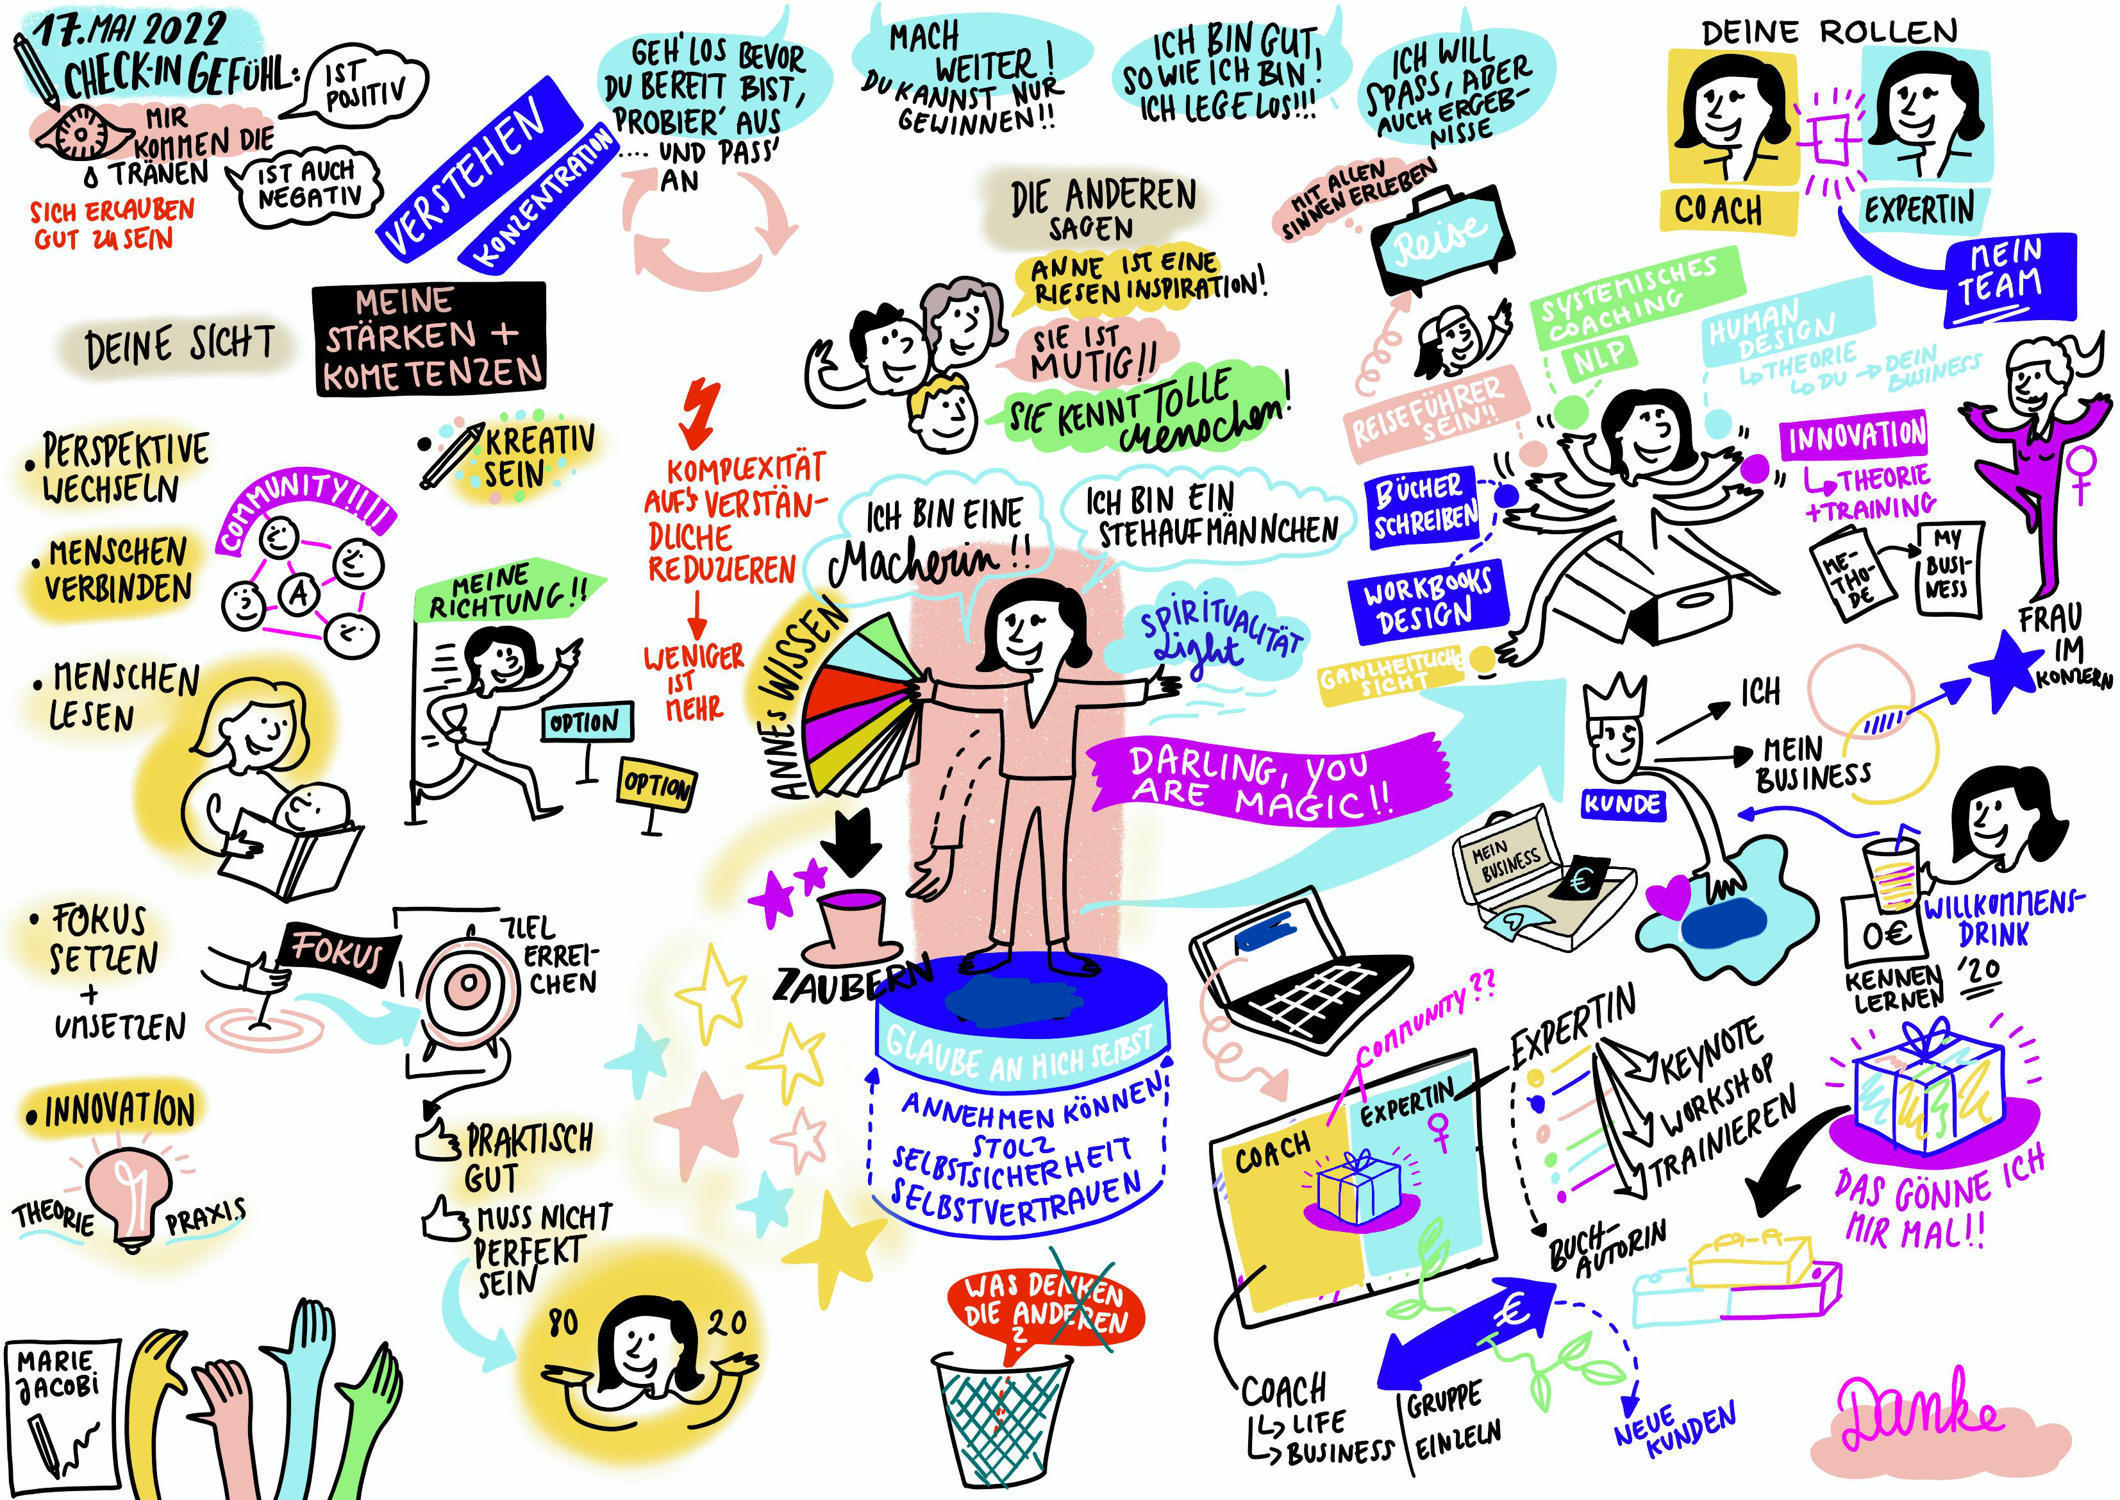 17. MAI 2022
CHECK-IN GEFÜHL:
IST
POSITIV
MIR
KOMMEN DIE
TRÄNEN
IST AUCH
NEGATIV
SICH ERLAUBEN
GUT ZU SEIN
VERSTEHEN
KONZENTRATION
GEH' LOS BEVOR
DU BEREIT BIST,
PROBIER' AUS
.... UND PASS'
AN
MACH
WEITER!
DU KANNST NUR
GEWINNEN!!
ICH BIN GUT,
SO WIE ICH BIN!
ICH LEGE LOS!!!
ICH WILL
SPASS, ABER
AUCH ERGEB-
NISSE
DEINE ROLLEN
COACH
EXPERTIN
MEIN
TEAM
DEINE SICHT
MEINE
STÄRKEN +
KOMETENZEN
DIE ANDEREN
SAGEN
ANNE IST EINE
RIESEN INSPIRATION!
SIE IST
MUTIG!!
SIE KENNT TOLLE
Menschen!
MIT ALLEN
SINNEN ERLEBEN
Reise
REISEFÜHRER
SEIN!!
SYSTEMISCHES
COACHING
NLP
HUMAN
DESIGN
THEORIE
DU → DEIN
BUSINESS
INNOVATION
THEORIE
+TRAINING
ME-
THO-
DE
MY
BUSI-
NESS
BÜCHER
SCHREIBEN
WORKBOOKS
DESIGN
GANZHEITLICHE
SICHT
FRAU
IM
KONZERN
• PERSPEKTIVE
WECHSELN
• MENSCHEN
VERBINDEN
• MENSCHEN
LESEN
COMMUNITY!!!!
A
KREATIV
SEIN
MEINE
RICHTUNG!!
OPTION
OPTION
KOMPLEXITÄT
AUF'S VERSTÄN-
DLICHE
REDUZIEREN
WENIGER
IST
MEHR
ICH BIN EINE
Macherin!!
ICH BIN EIN
STEHAUFMÄNNCHEN
ANNES WISSEN
SPIRITUALITÄT
Light
DARLING, YOU
ARE MAGIC!!
ZAUBERN
GLAUBE AN MICH SELBST
ANNEHMEN KÖNNEN
STOLZ
SELBSTSICHERHEIT
SELBSTVERTRAUEN
• FOKUS
SETZEN
+
UMSETZEN
FOKUS
ZIEL
ERREI-
CHEN
• INNOVATION
THEORIE
PRAXIS
PRAKTISCH
GUT
MUSS NICHT
PERFEKT
SEIN
80
20
WAS DENKEN
DIE ANDEREN
?
KUNDE
ICH
MEIN
BUSINESS
MEIN
BUSINESS
€
WILLKOMMENS-
DRINK
0€
KENNEN
LERNEN
'20
COMMUNITY??
COACH
EXPERTIN
EXPERTIN
KEYNOTE
WORKSHOP
TRAINIEREN
BUCH-
AUTORIN
DAS GÖNNE ICH
MIR MAL!!
€
COACH
LIFE
BUSINESS
GRUPPE
EINZELN
NEUE
KUNDEN
MARIE
JACOBI
Danke